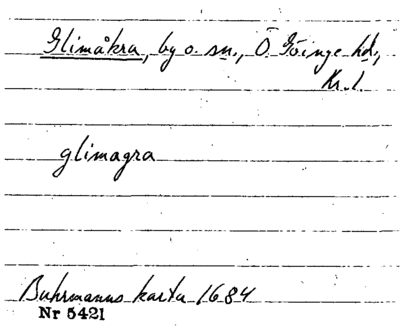 Glimåkra, by o. sn., Ö. Göinge hd.,
Kr. l.
glimagra
Buhrmanns karta 1684
Nr 5421